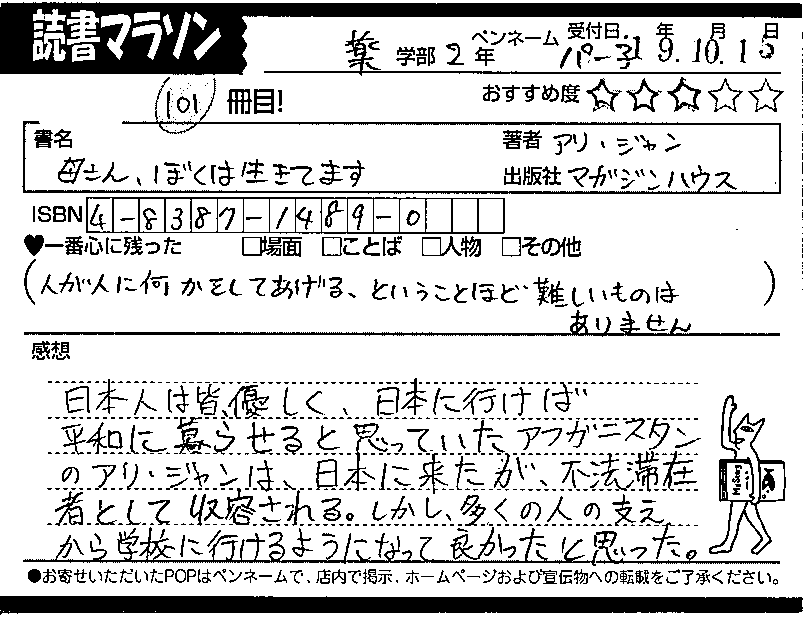 読書マラソン
薬 学部 2 年 ペンネーム パー子 受付日 19年10月15日
101 冊目! おすすめ度 ☆☆☆☆☆
書名 著者 アリ・ジャン
母さん、ぼくは生きてます 出版社 マガジンハウス
ISBN 4-8387-1489-0
♥一番心に残った □場面 □ことば □人物 □その他
(人が人に何かをしてあげる、ということほど難しいものは
ありません)
感想
日本人は皆、優しく、日本に行けば
平和に暮らせると思っていたアフガニスタン
のアリ・ジャンは、日本に来たが、不法滞在
者として収容される。しかし、多くの人の支え
から学校に行けるようになって良かったと思った。
●お寄せいただいたPOPはペンネームで、店内で掲示、ホームページおよび宣伝物への転載をご了承ください。